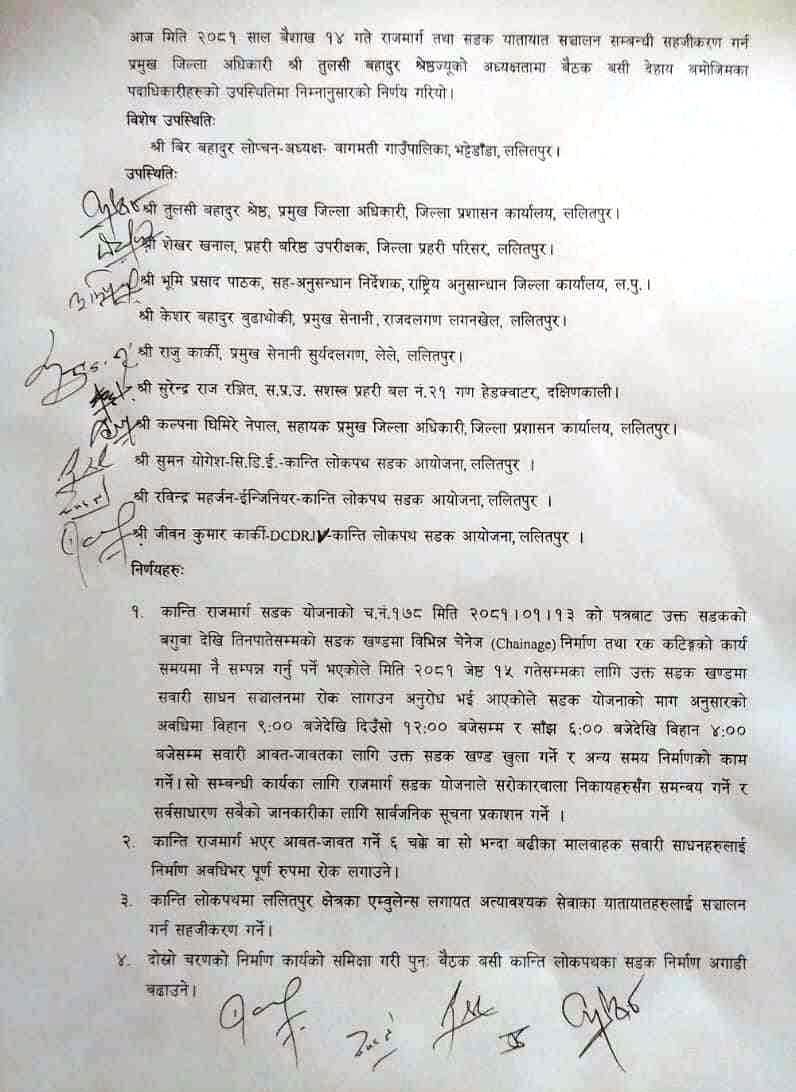 आज मिति २०८१ साल बैशाख १४ गते राजमार्ग तथा सडक यातायात सञ्चालन सम्बन्धी सहजीकरण गर्न
प्रमुख जिल्ला अधिकारी श्री तुलसी बहादुर श्रेष्ठज्यूको अध्यक्षतामा बैठक बसी देहाय बमोजिमका
पदाधिकारीहरुको उपस्थितिमा निम्नानुसारको निर्णय गरियो।
विशेष उपस्थितिः
श्री बिर बहादुर लोप्चन-अध्यक्ष- वागमती गाउँपालिका, भट्टेडाँडा, ललितपुर।
उपस्थितिः
श्री तुलसी बहादुर श्रेष्ठ, प्रमुख जिल्ला अधिकारी, जिल्ला प्रशासन कार्यालय, ललितपुर।
श्री शेखर खनाल, प्रहरी बरिष्ठ उपरीक्षक, जिल्ला प्रहरी परिसर, ललितपुर।
श्री भूमि प्रसाद पाठक, सह-अनुसन्धान निर्देशक, राष्ट्रिय अनुसान्धान जिल्ला कार्यालय, ल.पु.।
श्री केशर बहादुर बुढाथोकी, प्रमुख सेनानी, राजदलगण लगनखेल, ललितपुर।
श्री राजु कार्की, प्रमुख सेनानी सुर्यदलगण, लेले, ललितपुर।
श्री सुरेन्द्र राज रञ्जित, स.प्र.उ. सशस्त्र प्रहरी बल नं.२१ गण हेडक्वाटर, दक्षिणकाली।
श्री कल्पना घिमिरे नेपाल, सहायक प्रमुख जिल्ला अधिकारी, जिल्ला प्रशासन कार्यालय, ललितपुर।
श्री सुमन योगेश-सि.डि.ई.-कान्ति लोकपथ सडक आयोजना, ललितपुर ।
श्री रविन्द्र महर्जन-ईन्जिनियर-कान्ति लोकपथ सडक आयोजना, ललितपुर ।
श्री जीवन कुमार कार्की-DCDRJV-कान्ति लोकपथ सडक आयोजना, ललितपुर ।
निर्णयहरुः
१. कान्ति राजमार्ग सडक योजनाको च.नं.१७८ मिति २०८१।०१।१३ को पत्रबाट उक्त सडकको
बगुवा देखि तिनपातेसम्मको सडक खण्डमा विभिन्न चेनेज (Chainage) निर्माण तथा रक कटिङ्गको कार्य
समयमा नै सम्पन्न गर्नु पर्ने भएकोले मिति २०८१ जेष्ठ १५ गतेसम्मका लागि उक्त सडक खण्डमा
सवारी साधन सञ्चालनमा रोक लागाउन अनुरोध भई आएकोले सडक योजनाको माग अनुसारको
अवधिमा विहान ९:०० बजेदेखि दिउँसो १२:०० बजेसम्म र साँझ ६:०० बजेदेखि विहान ४:००
बजेसम्म सवारी आवत-जावतका लागि उक्त सडक खण्ड खुला गर्ने र अन्य समय निर्माणको काम
गर्ने। सो सम्बन्धी कार्यका लागि राजमार्ग सडक योजनाले सरोकारवाला निकायहरुसँग समन्वय गर्ने र
सर्वसाधारण सबैको जानकारीका लागि सार्वजनिक सूचना प्रकाशन गर्ने ।
२. कान्ति राजमार्ग भएर आवत-जावत गर्ने ६ चक्के वा सो भन्दा बढीका मालवाहक सवारी साधनहरुलाई
निर्माण अवधिभर पूर्ण रुपमा रोक लगाउने।
३. कान्ति लोकपथमा ललितपुर क्षेत्रका एम्बुलेन्स लगायत अत्यावश्यक सेवाका यातायातहरुलाई सञ्चालन
गर्न सहजीकरण गर्ने।
४. दोस्रो चरणको निर्माण कार्यको समिक्षा गरी पुनः बैठक बसी कान्ति लोकपथका सडक निर्माण अगाडी
बढाउने।